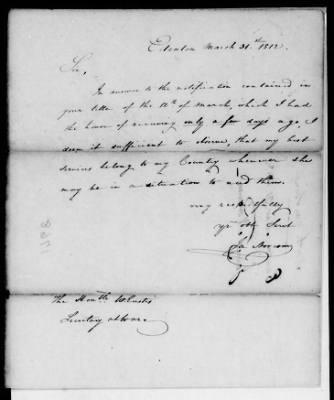 Edenton March 31st 1812.
Sir,
In answer to the notification contained in
your letter of the 12th of March, which I had
the honor of receiving only a few days ago, I
deem it sufficient to that my best
services belong to my Country whenever she
may be in a situation to need them.
very respectfully
yr obt Servt
The Honble W. Eustis
Secretary of War.